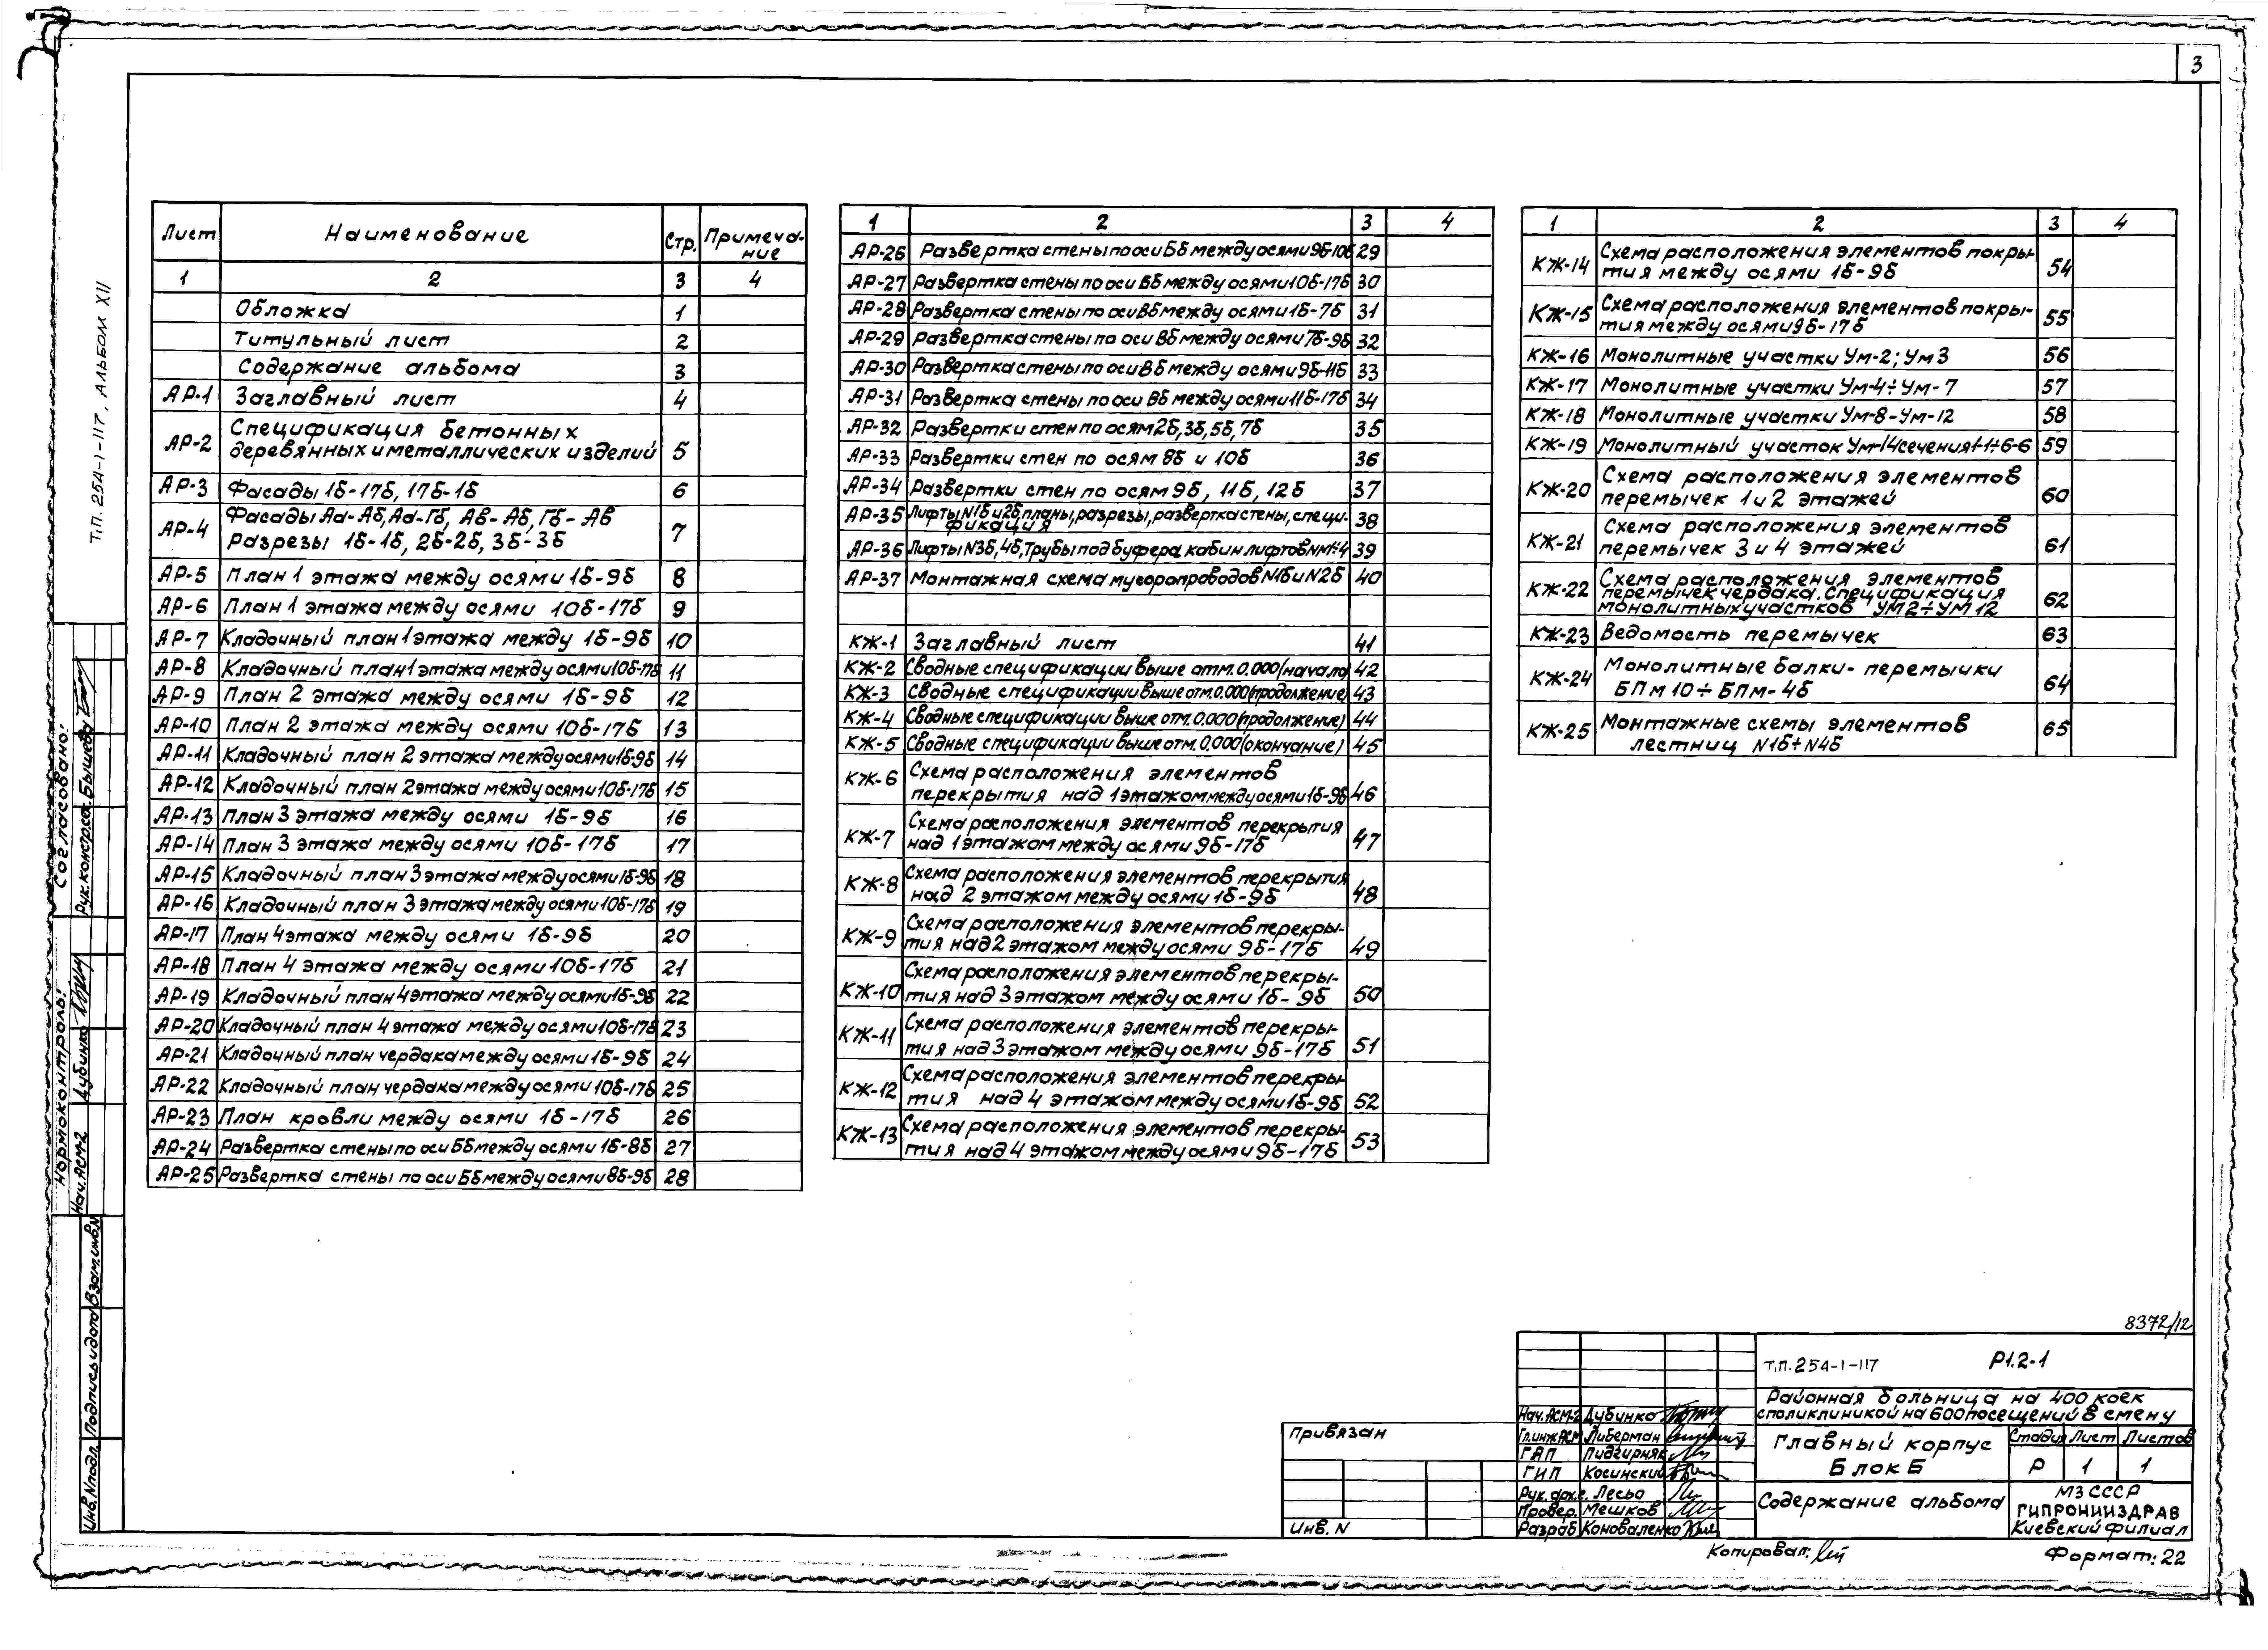 3
Т.П. 254-1-117, АЛЬБОМ XII
Лист Наименование Стр. Примеча-
ние
1 2 3 4
Обложка 1
Титульный лист 2
Содержание альбома 3
АР-1 Заглавный лист 4
АР-2 Спецификация бетонных
деревянных и металлических изделий 5
АР-3 Фасады 1б-17б, 17б-1б 6
АР-4 Фасады Ад-Аб, Ад-Гб, Ав-Аб, Гб-Ав
Разрезы 1б-1б, 2б-2б, 3б-3б 7
АР-5 План 1 этажа между осями 1б-9б 8
АР-6 План 1 этажа между осями 10б-17б 9
АР-7 Кладочный план 1 этажа между 1б-9б 10
АР-8 Кладочный план 1 этажа между осями 10б-17б 11
АР-9 План 2 этажа между осями 1б-9б 12
АР-10 План 2 этажа между осями 10б-17б 13
АР-11 Кладочный план 2 этажа между осями 1б-9б 14
АР-12 Кладочный план 2 этажа между осями 10б-17б 15
АР-13 План 3 этажа между осями 1б-9б 16
АР-14 План 3 этажа между осями 10б-17б 17
АР-15 Кладочный план 3 этажа между осями 1б-9б 18
АР-16 Кладочный план 3 этажа между осями 10б-17б 19
АР-17 План 4 этажа между осями 1б-9б 20
АР-18 План 4 этажа между осями 10б-17б 21
АР-19 Кладочный план 4 этажа между осями 1б-9б 22
АР-20 Кладочный план 4 этажа между осями 10б-17б 23
АР-21 Кладочный план чердака между осями 1б-9б 24
АР-22 Кладочный план чердака между осями 10б-17б 25
АР-23 План кровли между осями 1б-17б 26
АР-24 Развертка стены по оси Бб между осями 1б-8б 27
АР-25 Развертка стены по оси Бб между осями 8б-9б 28
1 2 3 4
АР-26 Развертка стены по оси Бб между осями 9б-10б 29
АР-27 Развертка стены по оси Бб между осями 10б-17б 30
АР-28 Развертка стены по оси Вб между осями 1б-7б 31
АР-29 Развертка стены по оси Вб между осями 7б-9б 32
АР-30 Развертка стены по оси Вб между осями 9б-11б 33
АР-31 Развертка стены по оси Вб между осями 11б-17б 34
АР-32 Развертки стен по осям 2б, 3б, 5б, 7б 35
АР-33 Развертки стен по осям 8б и 10б 36
АР-34 Развертки стен по осям 9б, 11б, 12б 37
АР-35 Лифты N1б и 2б, планы, разрезы, развертка стены, специ-
фикация 38
АР-36 Лифты N3б, 4б, Трубы под буфера кабин лифтов NN1÷4 39
АР-37 Монтажная схема мусоропроводов N1б и N2б 40
КЖ-1 Заглавный лист 41
КЖ-2 Сводные спецификации выше отм. 0.000 (начало) 42
КЖ-3 Сводные спецификации выше отм. 0.000 (продолжение) 43
КЖ-4 Сводные спецификации выше отм. 0.000 (продолжение) 44
КЖ-5 Сводные спецификации выше отм. 0.000 (окончание) 45
КЖ-6 Схема расположения элементов
перекрытия над 1 этажом между осями 1б-9б 46
КЖ-7 Схема расположения элементов перекрытия
над 1 этажом между осями 9б-17б 47
КЖ-8 Схема расположения элементов перекрытия
над 2 этажом между осями 1б-9б 48
КЖ-9 Схема расположения элементов перекры-
тия над 2 этажом между осями 9б-17б 49
КЖ-10 Схема расположения элементов перекры-
тия над 3 этажом между осями 1б-9б 50
КЖ-11 Схема расположения элементов перекры-
тия над 3 этажом между осями 9б-17б 51
КЖ-12 Схема расположения элементов перекры-
тия над 4 этажом между осями 1б-9б 52
КЖ-13 Схема расположения элементов перекры-
тия над 4 этажом между осями 9б-17б 53
1 2 3 4
КЖ-14 Схема расположения элементов покры-
тия между осями 1б-9б 54
КЖ-15 Схема расположения элементов покры-
тия между осями 9б-17б 55
КЖ-16 Монолитные участки Ум-2; Ум3 56
КЖ-17 Монолитные участки Ум-4÷Ум-7 57
КЖ-18 Монолитные участки Ум-8-Ум-12 58
КЖ-19 Монолитный участок Ум-14 сечения 1-1÷6-6 59
КЖ-20 Схема расположения элементов
перемычек 1 и 2 этажей 60
КЖ-21 Схема расположения элементов
перемычек 3 и 4 этажей 61
КЖ-22 Схема расположения элементов
перемычек чердака. Спецификация
монолитных участков УМ2÷УМ12 62
КЖ-23 Ведомость перемычек 63
КЖ-24 Монолитные балки-перемычки
БПм10÷БПм-4б 64
КЖ-25 Монтажные схемы элементов
лестниц N1б÷N4б 65
Согласовано:
Рук. констр. сек. Бышева
Нормоконтроль:
Нач. АСМ-2 Дубинко
Инв. N подл. Подпись и дата Взам. инв. N
8372/12
Т.П. 254-1-117 Р1.2-1
Районная больница на 400 коек
с поликлиникой на 600 посещений в смену
Нач. АСМ-2 Дубинко
Гл. инж. АСМ Либерман
ГАП Пидгирняк
ГИП Косинский
Рук. арх. с. Лесьо
Провер. Мешков
Разраб Коноваленко
Главный корпус
Блок Б
Стадия Лист Листов
Р 1 1
Содержание альбома
МЗ СССР
ГИПРОНИИЗДРАВ
Киевский филиал
Привязан
Инв. N
Копировал:
Формат: 22